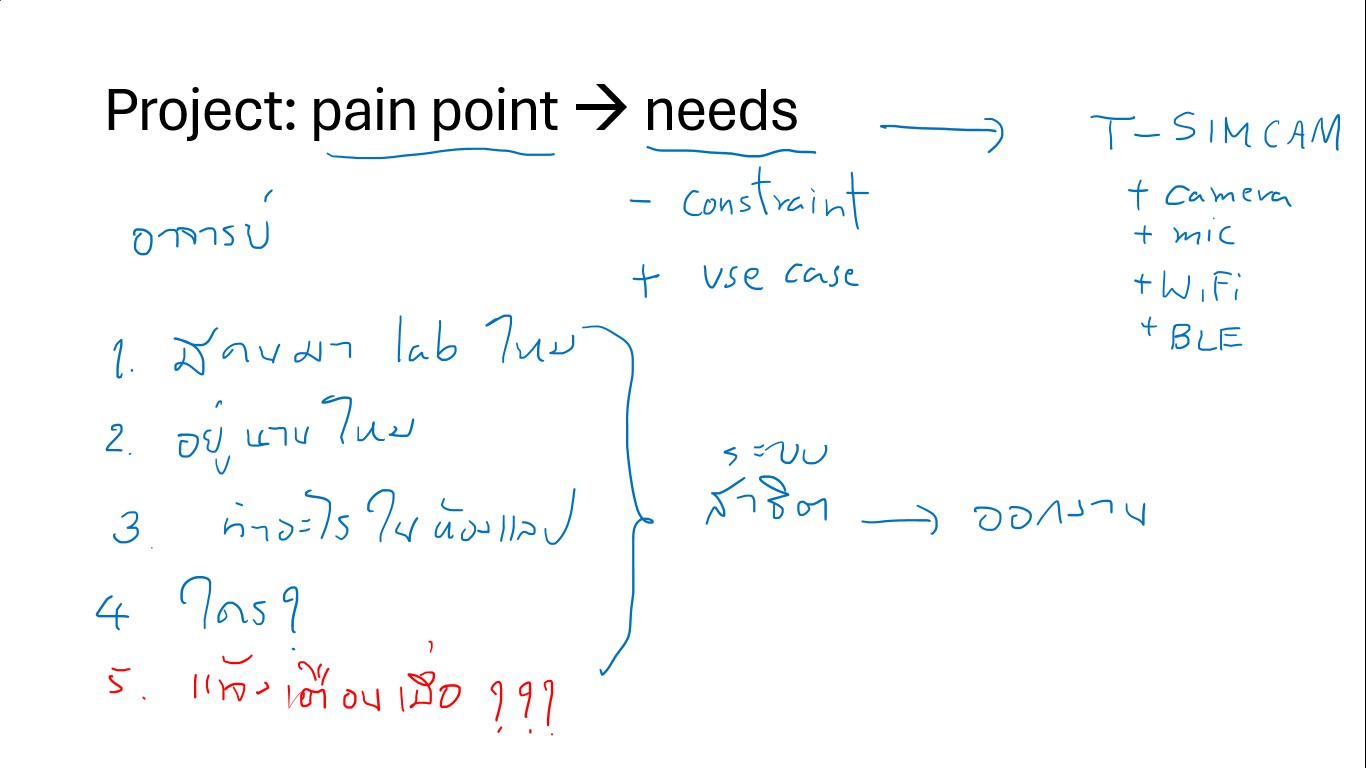 Project: pain point → needs → T-SIMCAM
- constraint
+ use case
+ camera
+ mic
+ WiFi
+ BLE
อาจารย์
1. มีคนมา lab ไหม
2. อยู่นานไหม
3. ทำอะไรในห้องแลป
4 ใคร?
5. แจ้งเตือนเมื่อ ???
ระบบ
สาธิต → ออกงาน